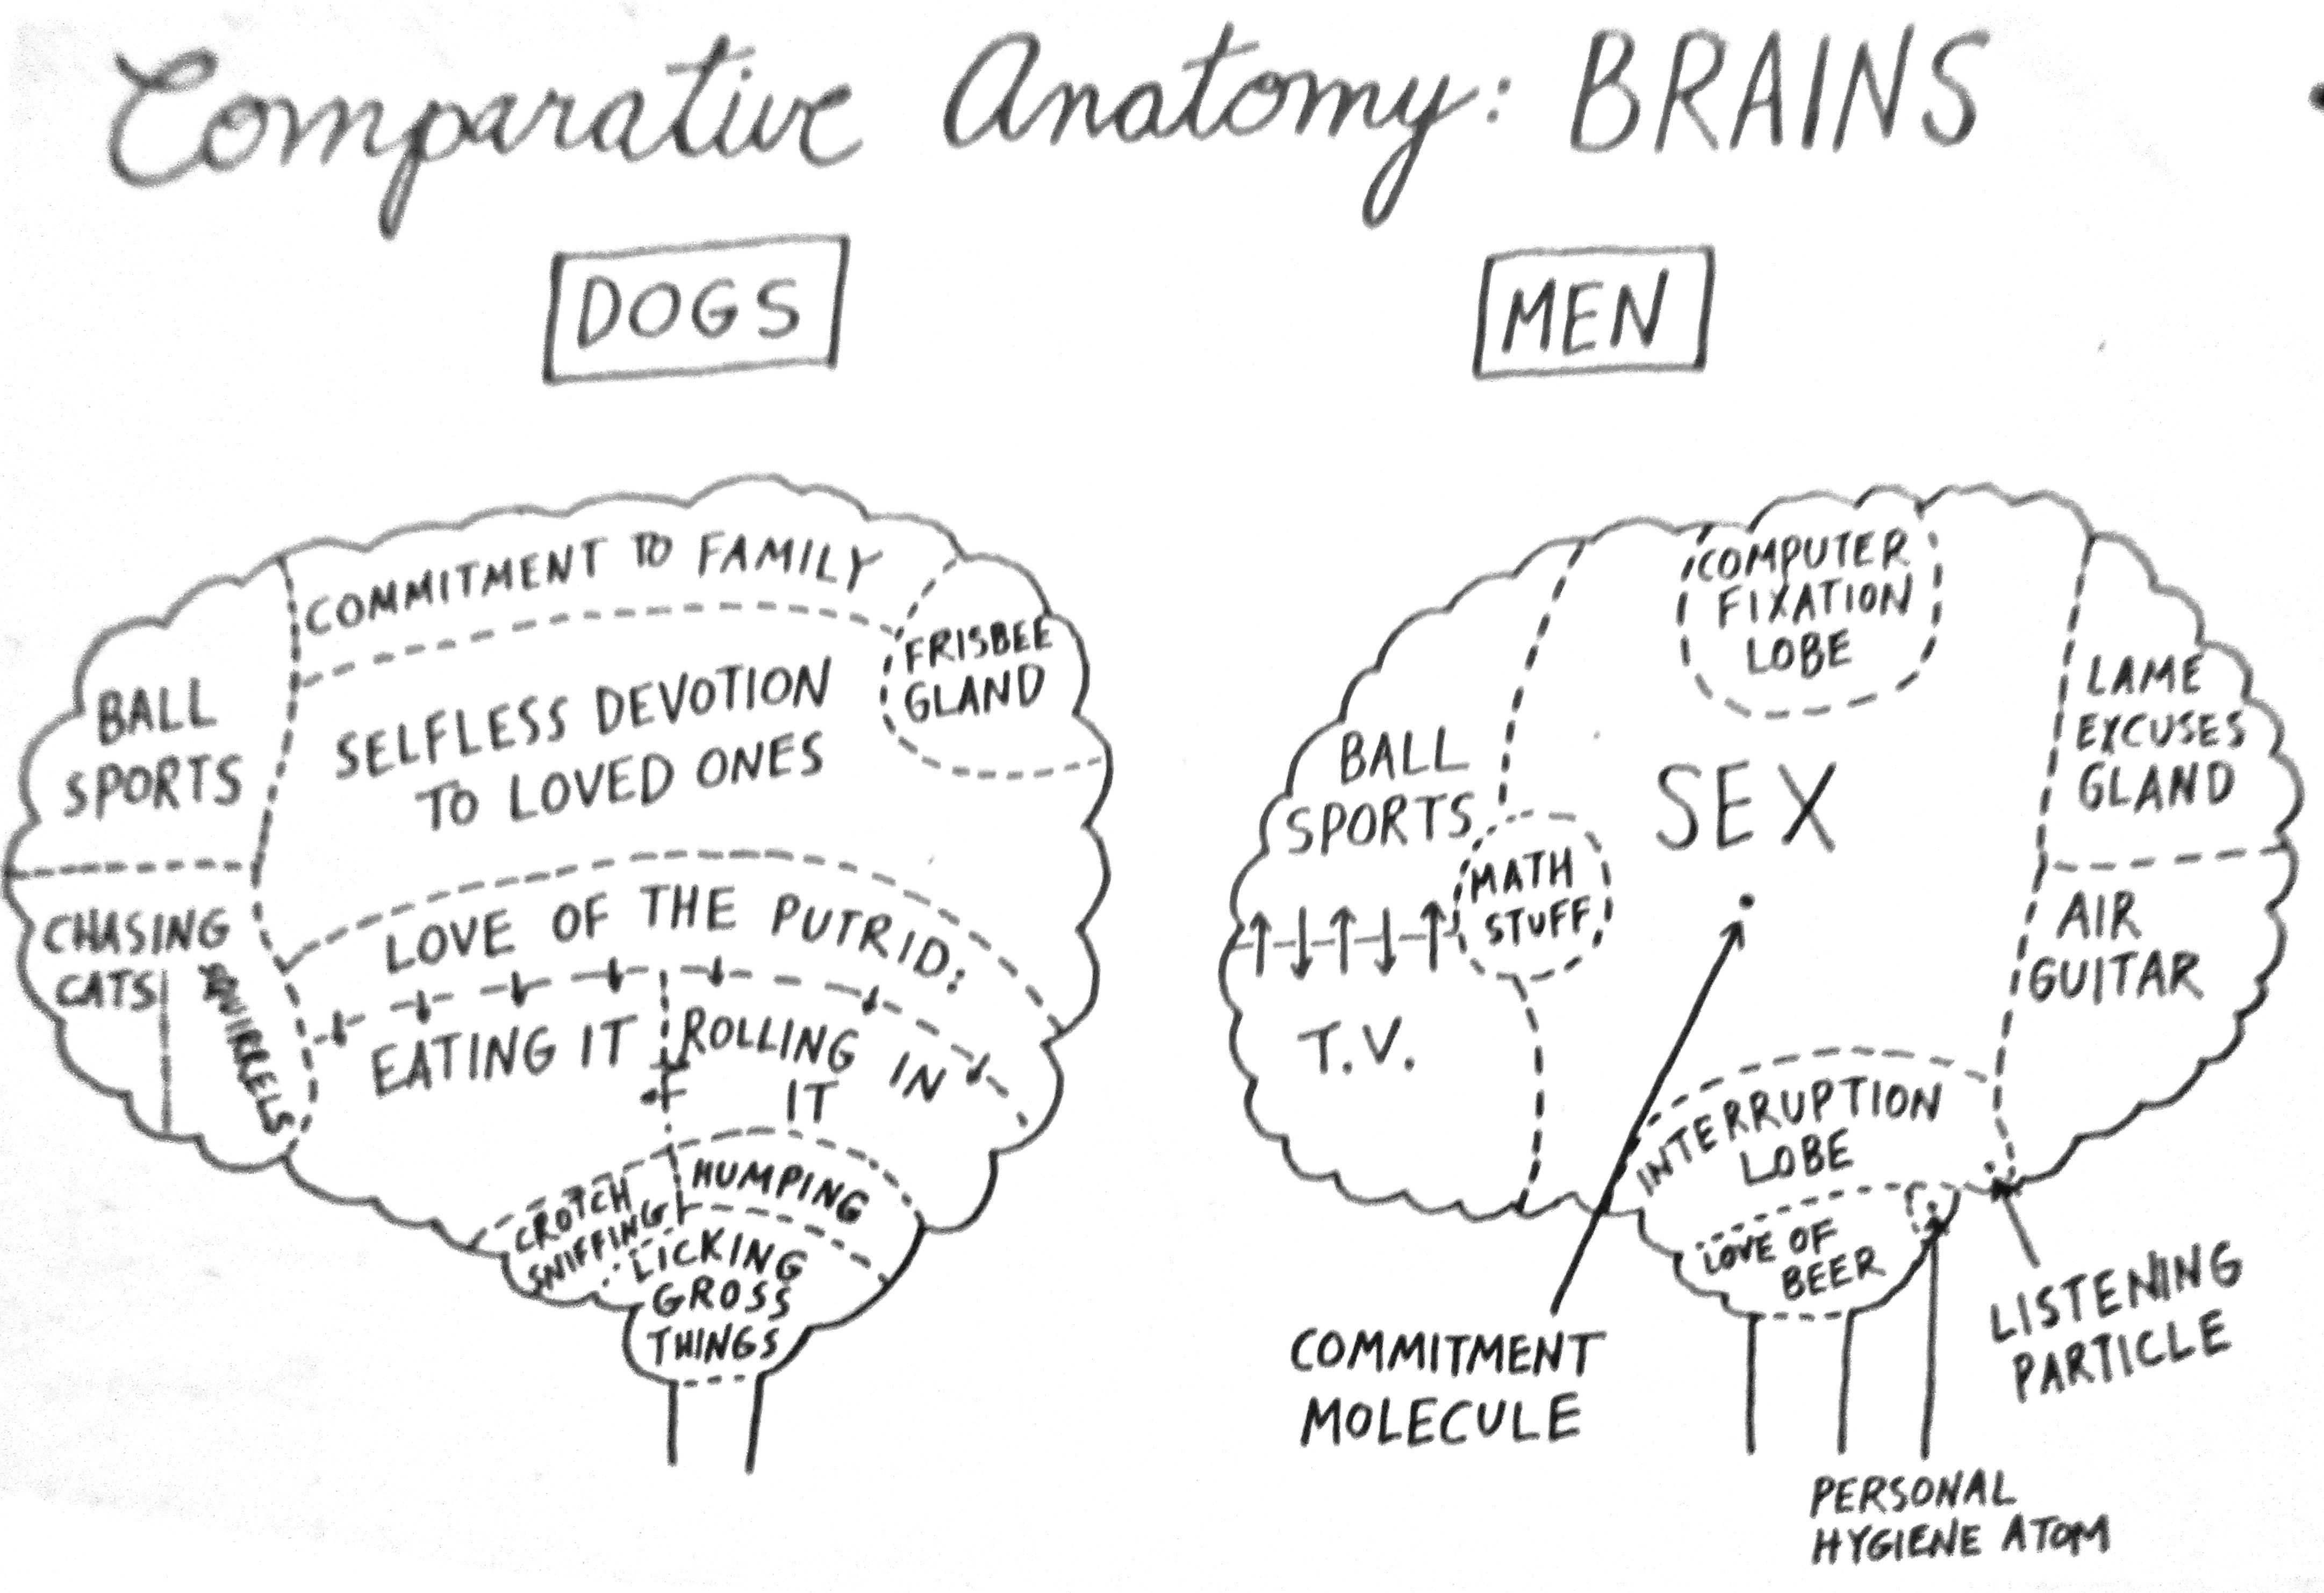 Comparative Anatomy: BRAINS
DOGS
MEN
COMMITMENT TO FAMILY
FRISBEE
GLAND
BALL
SPORTS
SELFLESS DEVOTION
TO LOVED ONES
CHASING
CATS
SQUIRRELS
LOVE OF THE PUTRID:
EATING IT
ROLLING IN
IT
CROTCH
SNIFFING
HUMPING
LICKING
GROSS
THINGS
COMPUTER
FIXATION
LOBE
BALL
SPORTS
MATH
STUFF
SEX
LAME
EXCUSES
GLAND
AIR
GUITAR
T.V.
INTERRUPTION
LOBE
LOVE OF
BEER
COMMITMENT
MOLECULE
LISTENING
PARTICLE
PERSONAL
HYGIENE ATOM